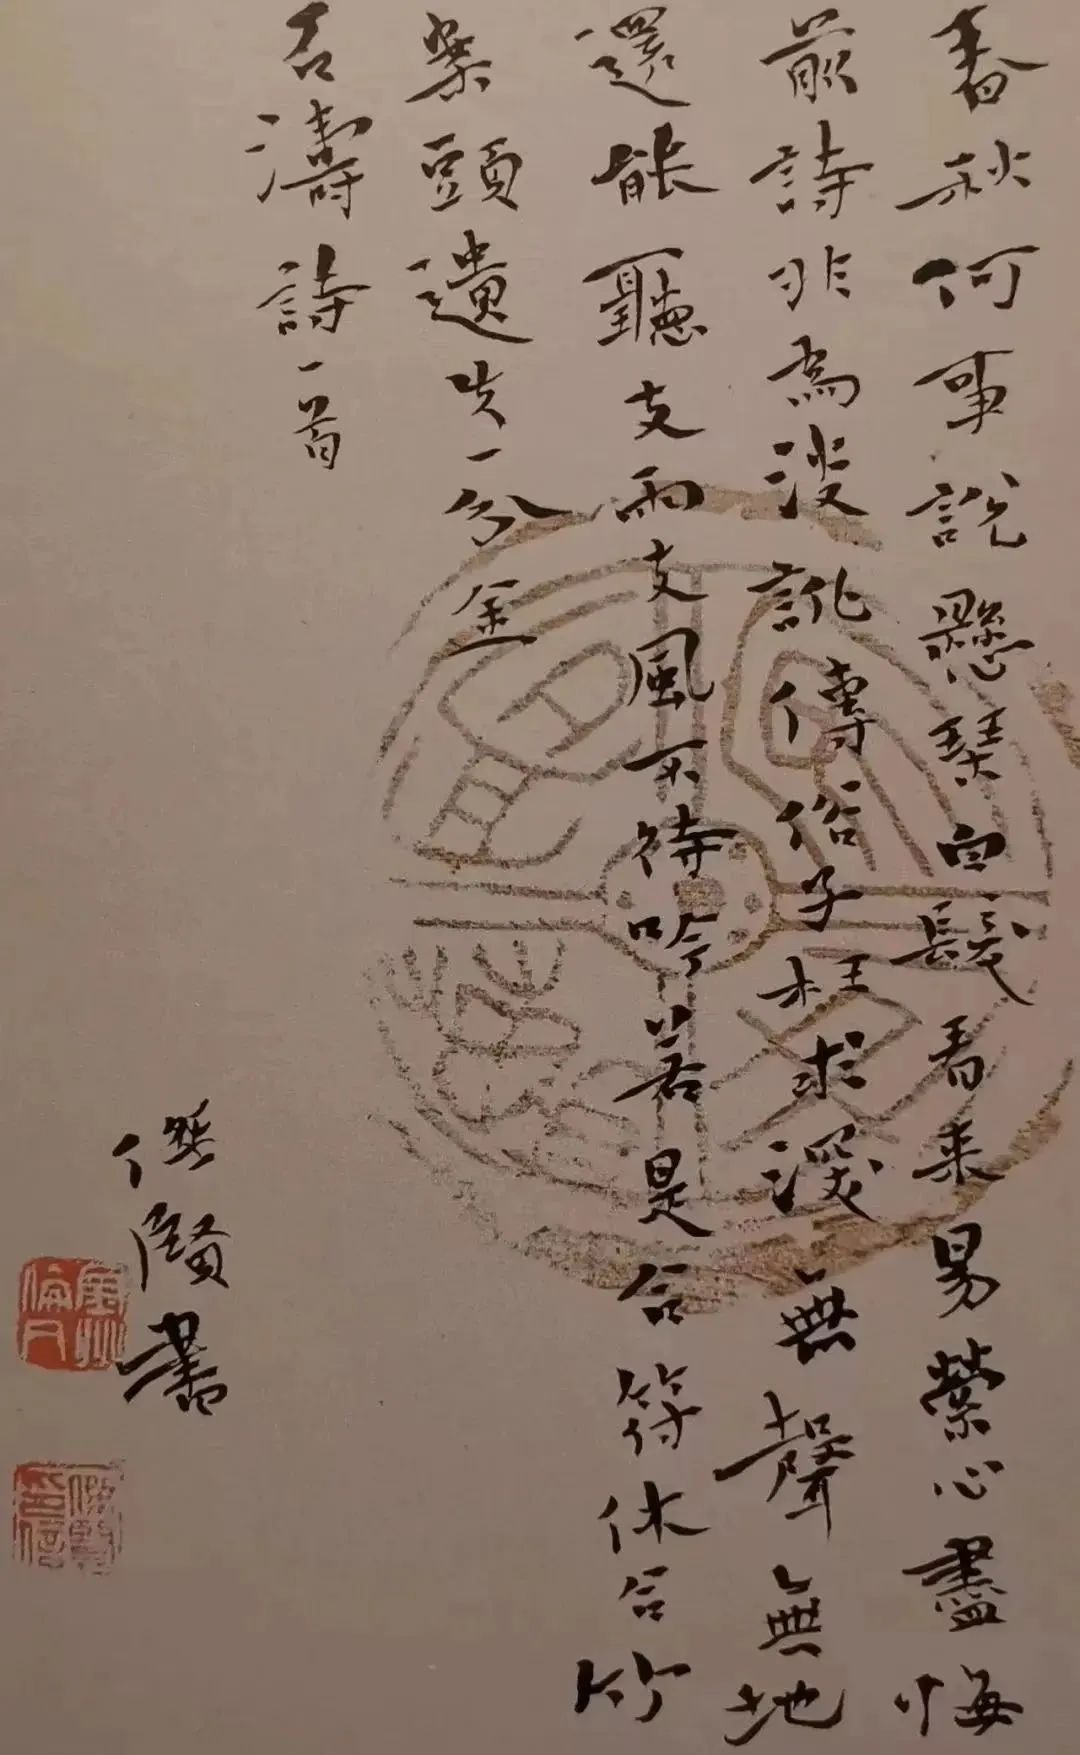 春秋何事說懸琹白髮看来易縈心盡悔
前詩非為淡訛傳俗子枉求深無聲無地
還能聽支雨支風不待吟若是合符休合竹
案頭遺失一分金
石濤詩一首
傑賢書